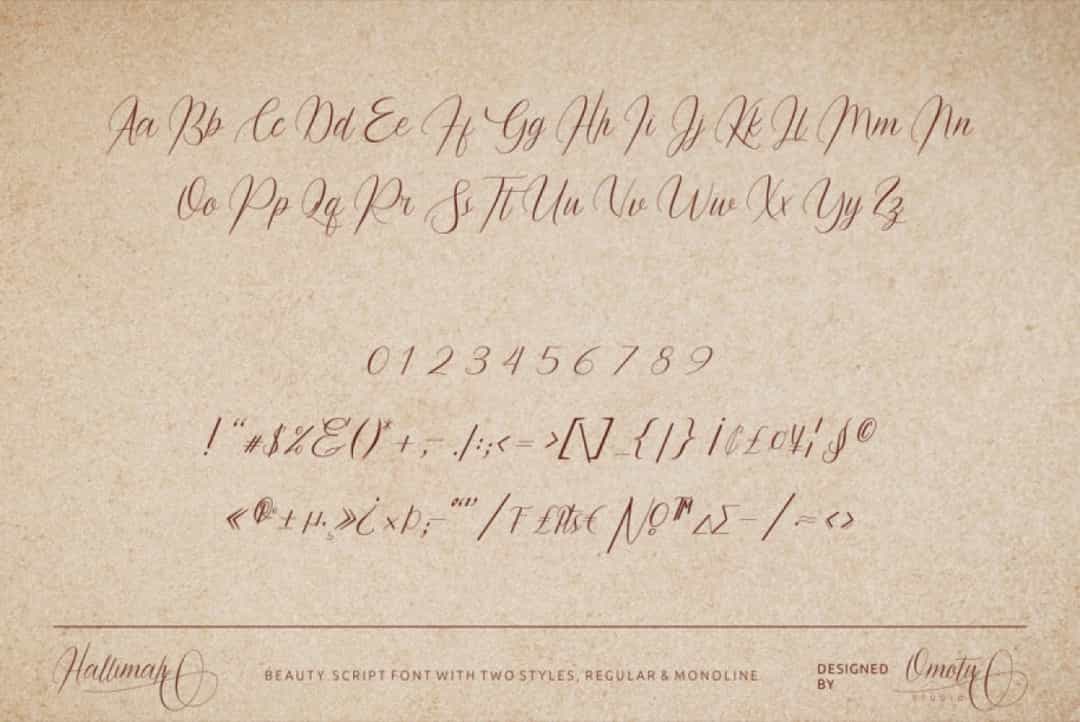 Aa Bb Cc Dd Ee Ff Gg Hh Ii Jj Kk Ll Mm Nn
Oo Pp Qq Rr Ss Tt Uu Vv Ww Xx Yy Zz
0 1 2 3 4 5 6 7 8 9
! “ # $ % & ( ) * + , - . / : ; < = > [ \ ] _ { | } ¡ ¢ £ ¤ ¥ ¦ § ©
« ® ± µ · ¸ » ¿ × Þ ; – “‘’” ⁄ ₣ ₤ ₧ € № ™ ∆ ∑ − ∕ ≈ ‹ ›
Hallimah
BEAUTY SCRIPT FONT WITH TWO STYLES, REGULAR & MONOLINE
DESIGNED BY
Omotu
STUDIO